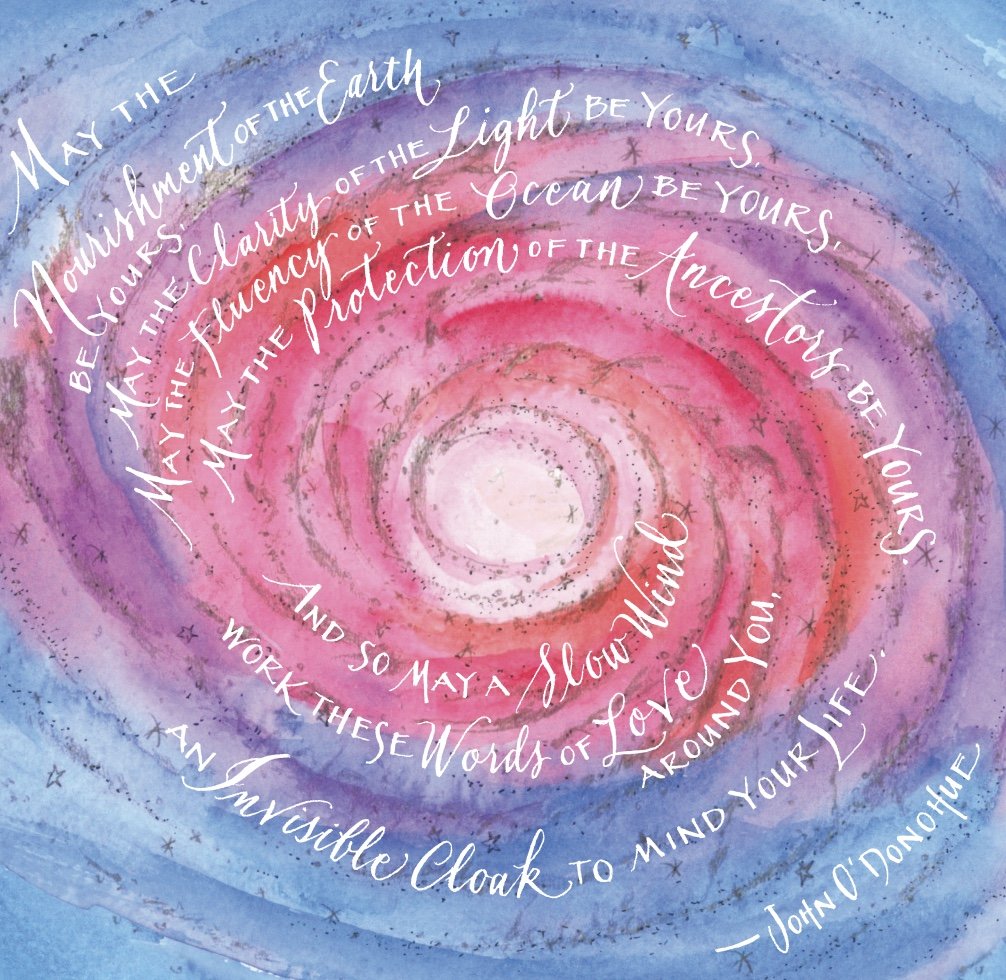 May the
Nourishment of the Earth
be yours,
May the Clarity of the Light be yours,
May the Fluency of the Ocean be yours,
May the Protection of the Ancestors be yours.
And so may a Slow Wind
work these Words of Love
around you,
an Invisible Cloak to mind your Life.
—John O'Donohue